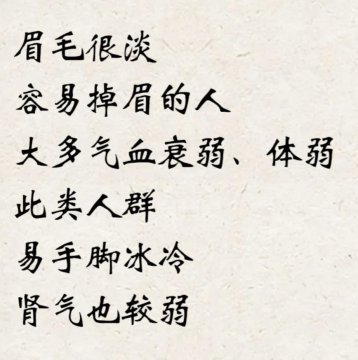 眉毛很淡
容易掉眉的人
大多气血衰弱、体弱
此类人群
易手脚冰冷
肾气也较弱